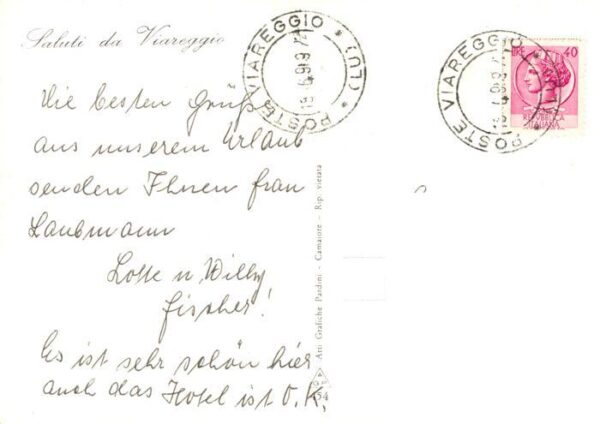 Saluti da Viareggio
Die besten Grüße
aus unserem Urlaub
senden Ihnen Frau
Laubmann
Lotte u Willy
Fischer!
Es ist sehr schön hier
auch das Hotel ist O.K.
Arti Grafiche Pardini - Camaiore - Rip. vietata
54
POSTE VIAREGGIO * (LU) *
POSTE VIAREGGIO * (LU) *
LIRE 40
REPUBBLICA
ITALIANA